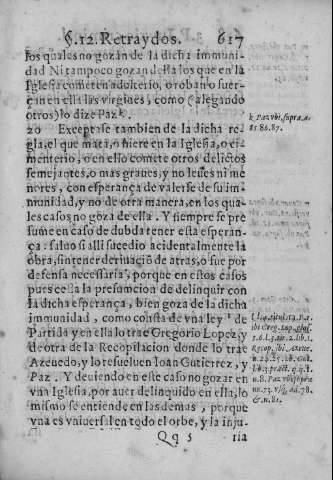 §.12. Retraydos. 617
los quales no gozan de la dicha immuni-
dad Ni tampoco gozan della los que en la
Iglesia cometen adulterio, o roban o fuer-
çan en ella las virgines, como (alegando
otros) lo dize Paz k.
20 Exceptase tambien de la dicha re
gla, el que mata, o hiere en la Iglesia, o ci-
menterio, o en ello comete otros delictos
semejantes, o mas graues, y no leues ni me
nores, con esperança de valerse de su im-
munidad, y no de otra manera, en los qua-
les casos no goza de ella. Y siempre se pre
sume en caso de dubda tener esta esperan-
ça: saluo si alli sucedio acidentalmente la
obra, sin tener deriuaciõ de atras, o fue por
defensa necessaria, porque en estos casos
pues cessa la presumcion de delinquir con
la dicha esperança, bien goza de la dicha
immunidad, como consta de vna ley l de
Partida y en ella lo trae Gregorio Lopez, y
de otra de la Recopilacion donde lo trae
Azeuedo, y lo resueluen Ioan Gutierrez, y
Paz. Y deuiendo en este caso no gozar en
vna Iglesia, por auer delinquido en ello, lo
mismo se entiende en las demas, porque
vna es vniuersal en todo el orbe, y la inju-
Qq 5 ria
k Paz vbi supra. n.
85.86.87.